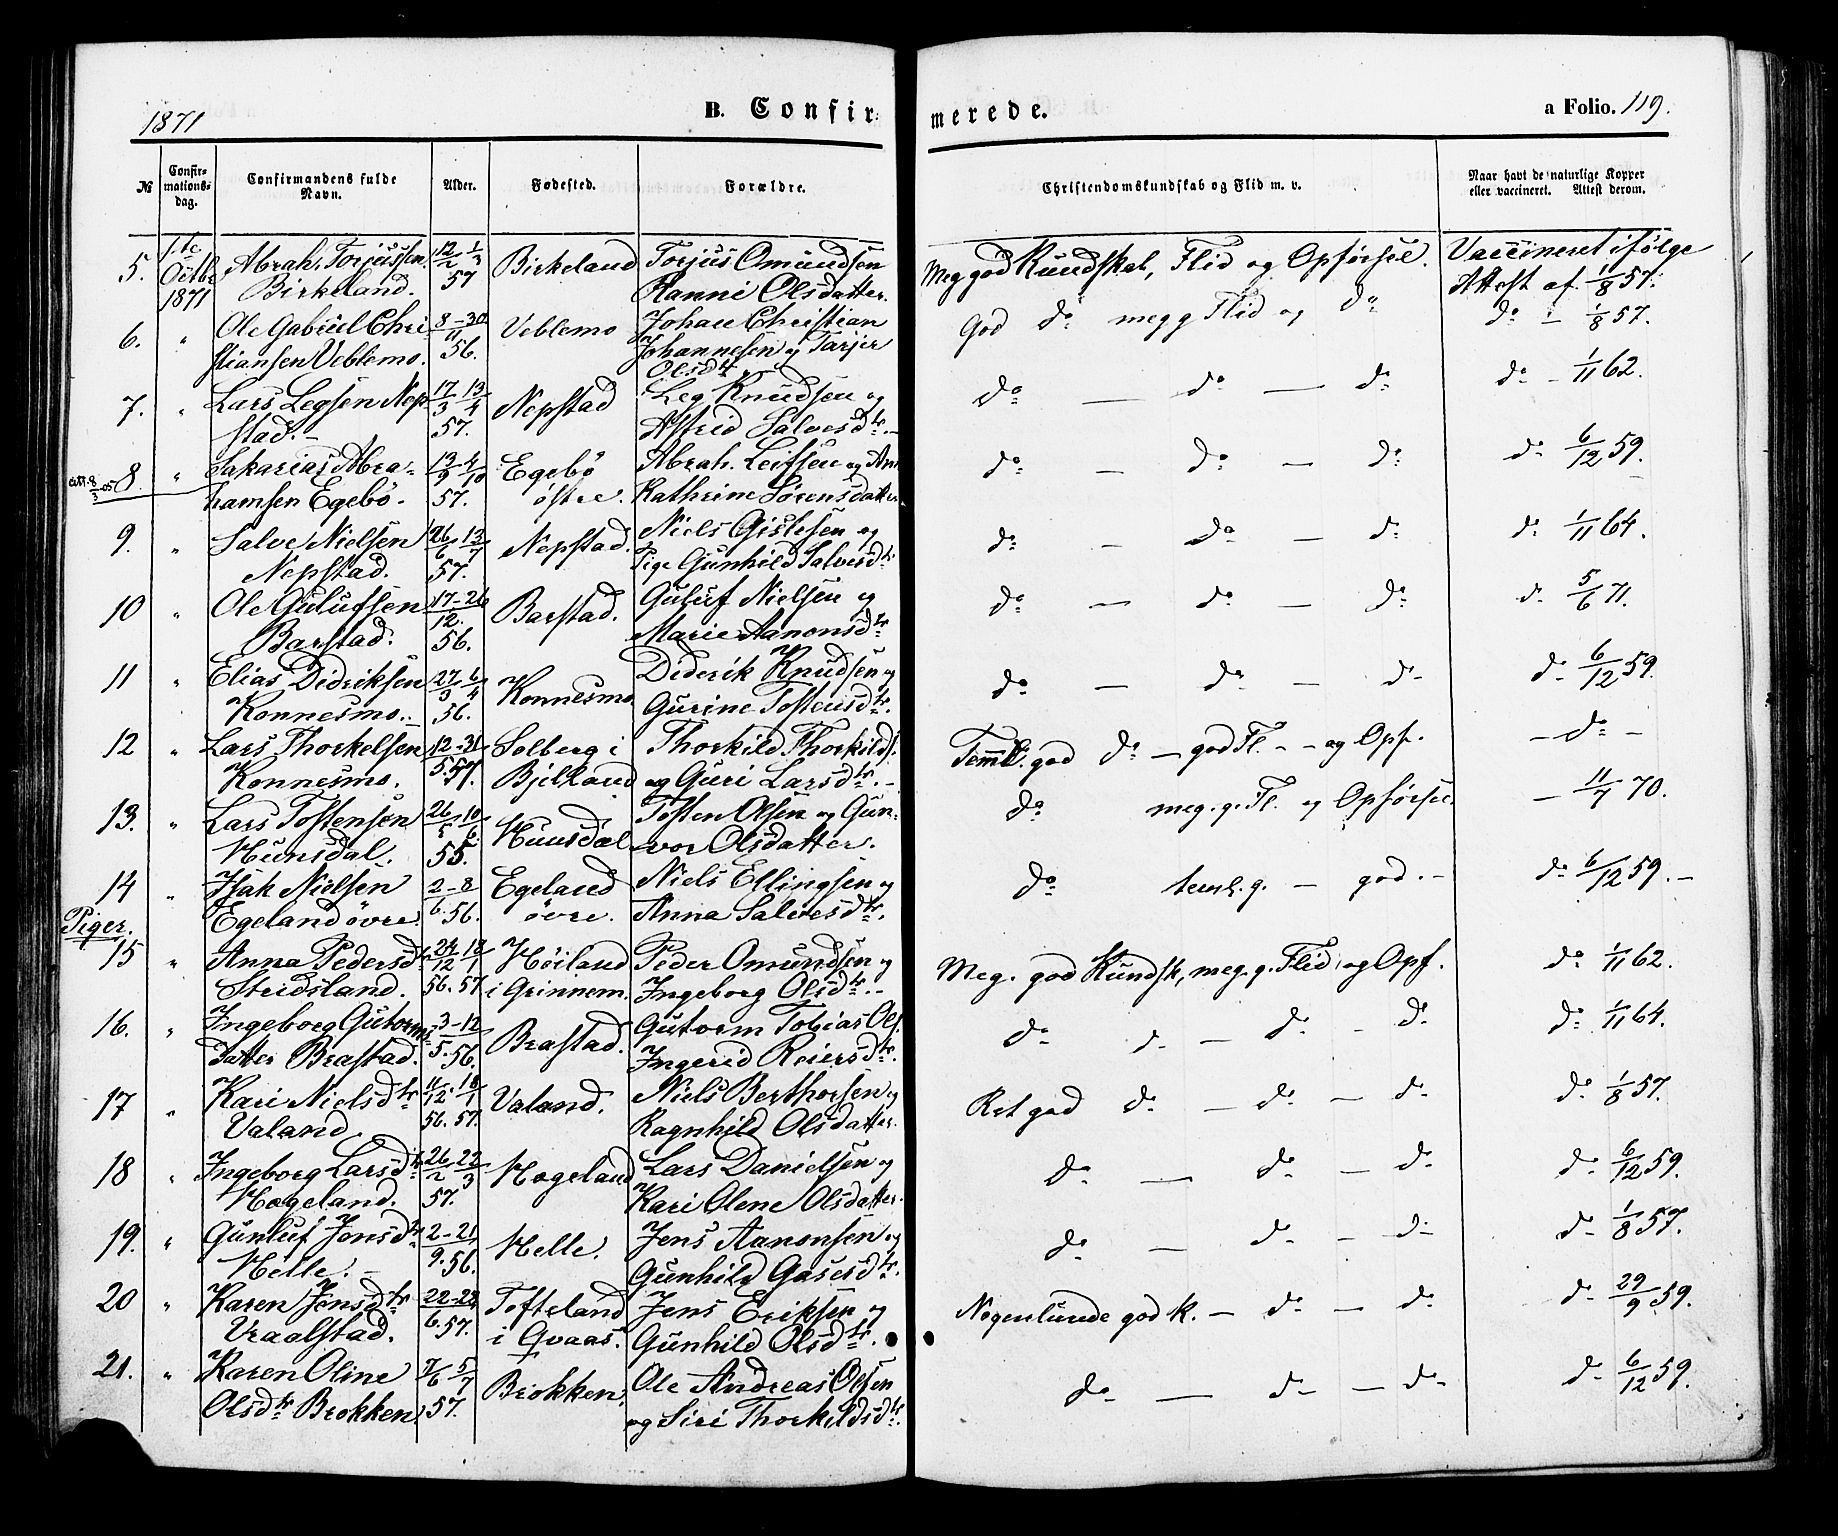 1871
B. Confir-
merede.
a Folio. 119.
№
Confir-
mations-
dag.
Confirmandens fulde
Navn.
Alder.
Fødested.
Forældre.
Christendomskundskab og Flid m. v.
Naar havt de naturlige Kopper
eller vaccineret. Attest derom.
5. 1ste Octbr 1871 Abrah. Torjussen 12/2 - 1/3 Birkeland Torjus Omundsen Meg god Kundskab, Flid og Opførsel. Vaccineret ifølge
Birkeland. 57 Ranni Olsdatter. Attest af 1/8 57.
6. " Ole Gabriel Chri- 8-30/11 Veblemo Johan Christian God do megg Flid og do do - 1/8 57.
stiansen Veblemo. 56. Johannesen og Tarjer
Olsdtr
7. " Lars Legsen Nep- 17/3 13/4 Nepstad Leg Knudsen og do — do — do do - 1/11 62.
stad. 57. Astrid Salvesdtr.
att. 8/3 05 8. " Sakarias Abra- 13/9 4/10 Egebö Abrah. Leifsen og Ane do — do — do do 6/12 59.
hamsen Egebö. 57. östre. Kathrine Sørensdatter
9. " Salve Nielsen 26/6 13/7 Nepstad. Niels Gislesen og do — do — do do 1/11 64.
Nepstad. 57. Pige Gunhild Salvesdtr
10 " Ole Gulufsen 17-26/12. Barstad. Guluf Nielsen og do — do — do do 5/6 71.
Barstad. 56. Marie Aanonsdtr
11 " Elias Didriksen 27/3 6/4 Konnesmo Diderik Knudsen og do — do — do do 6/12 59.
Konnesmo. 56. Gurine Tostensdtr.
12 " Lars Thorkelsen 12-31/5. Solberg i Thorkild Thorkilds. Teml. god do — god Fl. - - og Opf. - do -
Konnesmo. 57. Bjelland og Guri Larsdtr.
13. " Lars Tostensen 26/5 10/6 Hunsdal Tosten Olsen og Gun- do meg. g. Fl. og Opførsel - 11/7 70.
Hunsdal. 55. vor Olsdatter.
14 " Isak Nielsen 2-8/6. Egeland Niels Ellingsen og do teml. g. — god. - do 6/12 59. -
Egeland övre. 56. övre. Anna Salvesdtr.
Piger.
15 " Anna Pedersdtr 24/12 18/1 Höiland Peder Omundsen og Meg. god Kundsk, meg. g. Flid og Opf. do 1/11 62.
Stedsland. 56. 57. i Grinnem. Ingeborg Olsdtr.
16. " Ingeborg Gutorms 3-12/5. Brastad. Gutorm Tobias Ols. do do — do - do do 1/11 64.
datter Brastad. 56. Ingerid Reiersdtr.
17 " Kari Nielsdtr 11/12. 18/1 Valand. Niels Berthorsen og Ret god do — do — do do 1/8 57.
Valand 56. 57. Ragnhild Olsdatter.
18 " Ingeborg Larsdtr 26/2 22/3 Hageland Lars Danielsen og do — do — do do 6/12 59.
Hageland. 57. Kari Olene Olsdatter.
19. " Gunluf Jensdtr 2-21/9. Helle. Jens Aanonsen og do — do — do do 1/8 57.
Helle. 56. Gunhild Gasesdtr.
20 " Karen Jensdtr 22-28/6. Tofteland Jens Eriksen og Nogenlunde god K. — do — do do 29/9 59.
Vraalstad. 57. i Qvaas. Gunhild Olsdtr.
21. " Karen Oline 11/6 5/7 Brokken. Ole Andreas Olsen do — do — do do 6/12 59.
Olsdtr Brokken. 57. og Siri Thorkildsdtr.